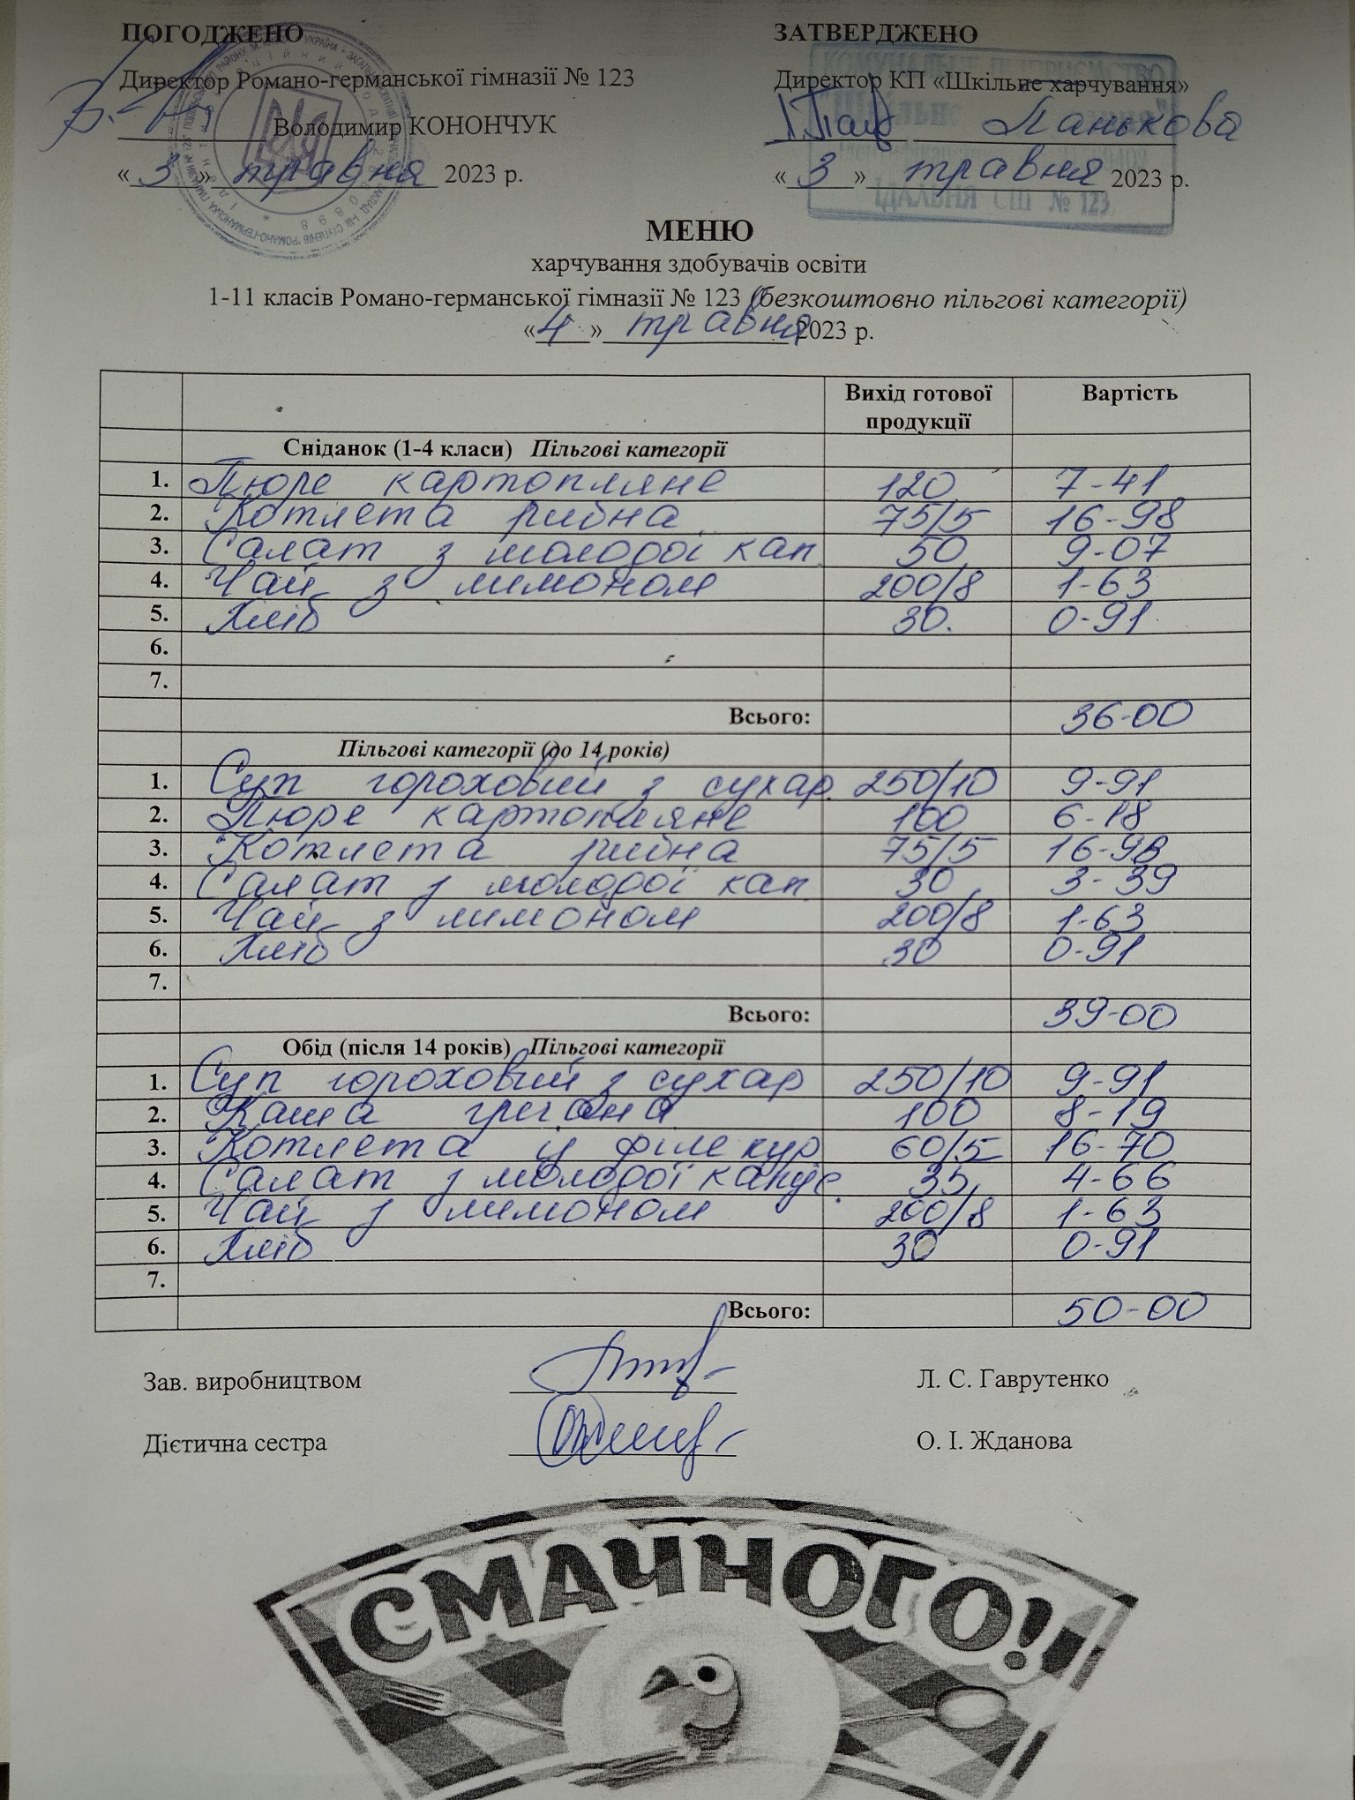 ПОГОДЖЕНО ЗАТВЕРДЖЕНО
Директор Романо-германської гімназії № 123 Директор КП «Шкільне харчування»
Володимир КОНОНЧУК Панькова
«3» травня 2023 р. «3» травня 2023 р.
ЇДАЛЬНЯ СШ № 123
МЕНЮ
харчування здобувачів освіти
1-11 класів Романо-германської гімназії № 123 (безкоштовно пільгові категорії)
«4» травня 2023 р.
Вихід готової продукції Вартість
Сніданок (1-4 класи) Пільгові категорії
1. Пюре картопляне 120 7-41
2. Котлета рибна 75/5 16-98
3. Салат з молодої кап 50 9-07
4. Чай з лимоном 200/8 1-63
5. Хліб 30. 0-91
6.
7.
Всього: 36-00
Пільгові категорії (до 14 років)
1. Суп гороховий з сухар. 250/10 9-91
2. Пюре картопляне 100 6-18
3. Котлета рибна 75/5 16-98
4. Салат з молодої кап 30 3-39
5. Чай з лимоном 200/8 1-63
6. Хліб 30 0-91
7.
Всього: 39-00
Обід (після 14 років) Пільгові категорії
1. Суп гороховий з сухар 250/10 9-91
2. Каша гречана 100 8-19
3. Котлета із філе кур 60/5 16-70
4. Салат з молодої капус. 35 4-66
5. Чай з лимоном 200/8 1-63
6. Хліб 30 0-91
7.
Всього: 50-00
Зав. виробництвом Л. С. Гаврутенко
Дієтична сестра О. І. Жданова
СМАЧНОГО!